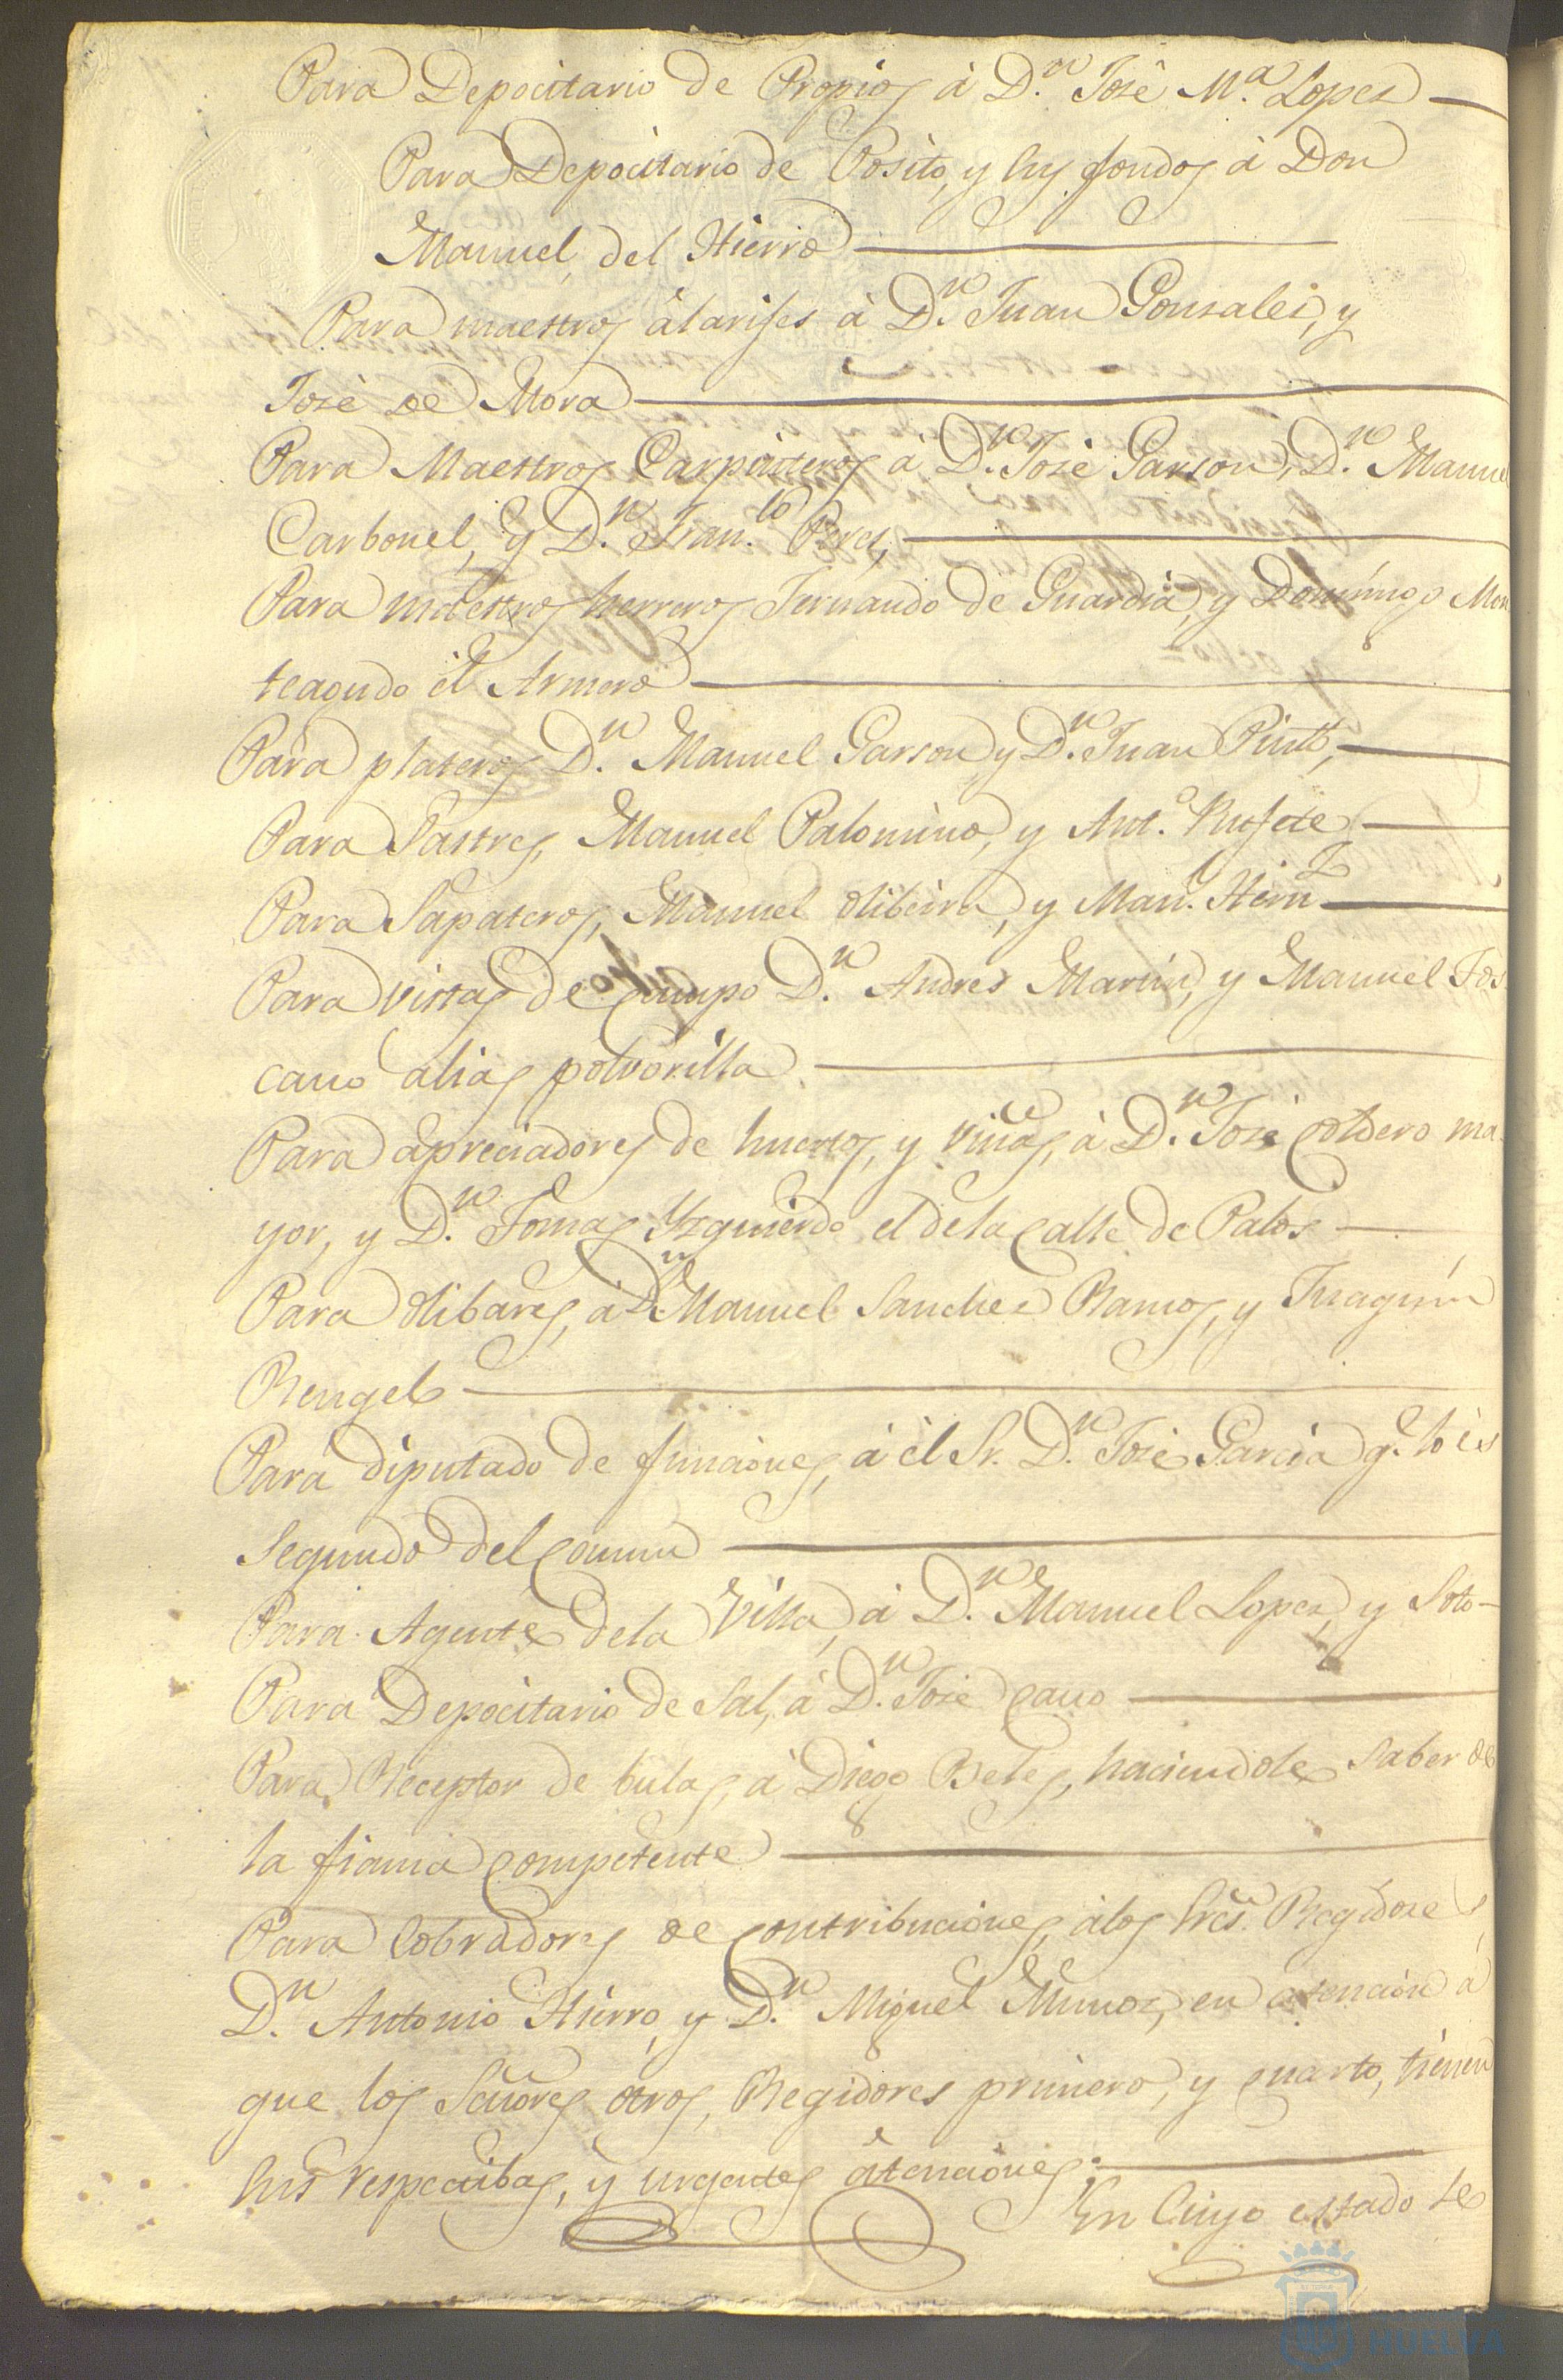 Para Depocitario de Propios á D.n José M.a Lopez
Para Depocitario de Posito, y sus fondos á Don
Manuel del Hierro
Para maestros álarifes á D.n Juan Gonsalez, y
José de Mora
Para Maestros Carpinteros á D.n José Garson, D.n Manuel
Carbonel, y D.n Fran.co Perez,
Para maestros herreros Fernando de Guardia, y Domingo Mon
teagudo él Armero
Para plateros D.n Manuel Garson y D.n Juan Pinto,
Para Sastres, Manuel Palomino, y Ant.o Rufete
Para Sapateros, Manuel Olibeira, y Man.l Hern.z
Para vistas de Campo D.n Andres Martin, y Manuel Tos
cano alias polvorilla
Para apreciadores de huertos, y viñas, á D.n José Coldero ma
yor, y D.n Tomas Yzquierdo el dela Calle de Palos
Para Olibares, á D.n Manuel Sanchez Ramos, y Juaquin
Rengel
Para diputado de funciones, á él Sr. D.n José Garcia q.e lo és
Segundo del Comun
Para Agente dela Villa, á D.n Manuel Lopez, y Soto
Para Depocitario de Sal, á D.n José Cano
Para Receptor de bulas, á Diego Beles, haciendole saber de
la fianza Competente
Para Cobradores de Contribuciones, álos Sres. Regidores,
D.n Antonio Hierro, y D.n Miguel Munoz, en atencion á
que los Señores otros, Regidores primero, y cuarto, tienen
sus respectibas, y urgentes átenciónes.
En Cuyo estado se
HUELVA